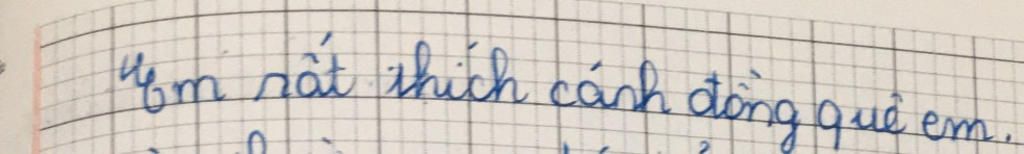 Em rất thích cánh đồng quê em.